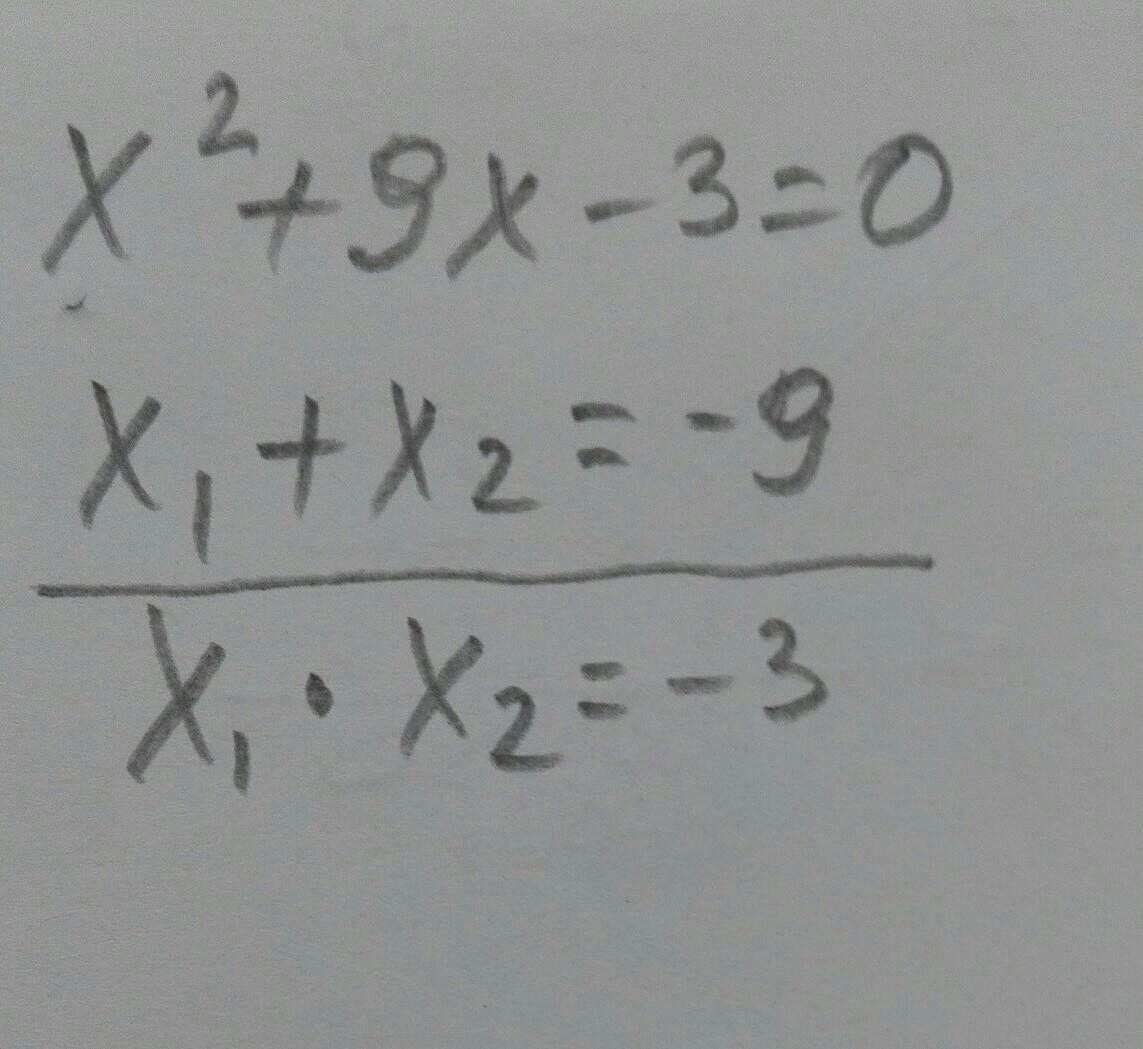 x²+9x-3=0
x₁+x₂=-9
x₁·x₂=-3